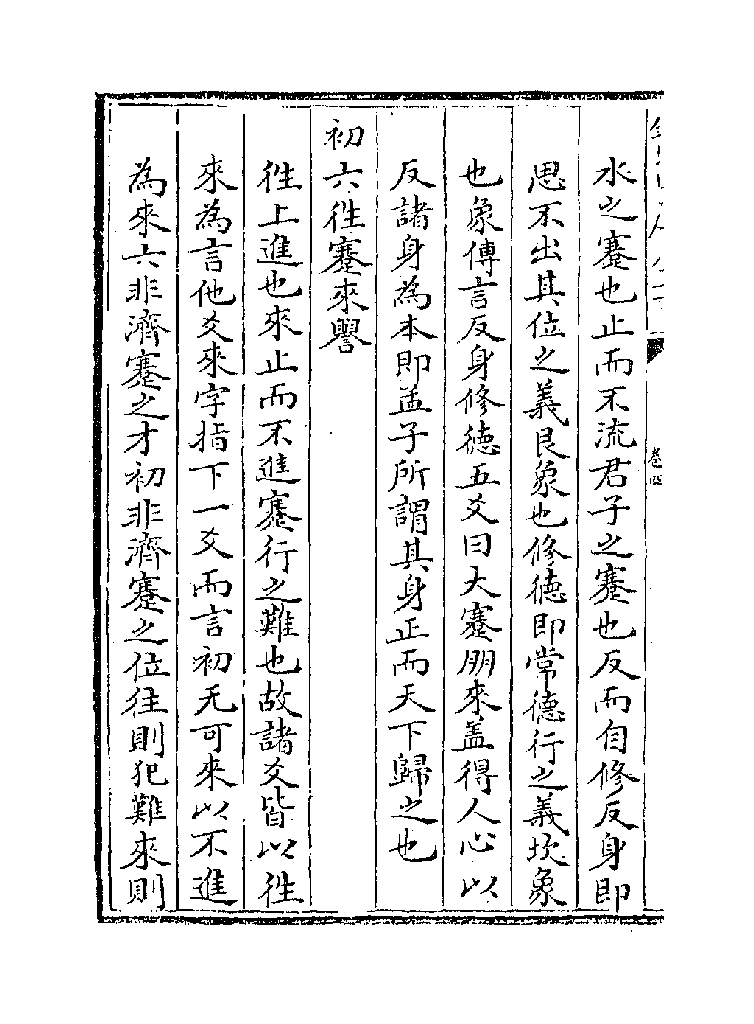 水之蹇也止而不流君子之蹇也反而自修反身即
思不出其位之義艮象也修徳即常德行之義坎象
也象傳言反身修徳五爻曰大蹇朋來盖得人心以
反諸身為本即孟子所謂其身正而天下歸之也
初六徃蹇來譽
徃上進也來止而不進蹇行之難也故諸爻皆以徃
來為言他爻來字指下一爻而言初无可來以不進
為來六非濟蹇之才初非濟蹇之位往則犯難來則
卷四